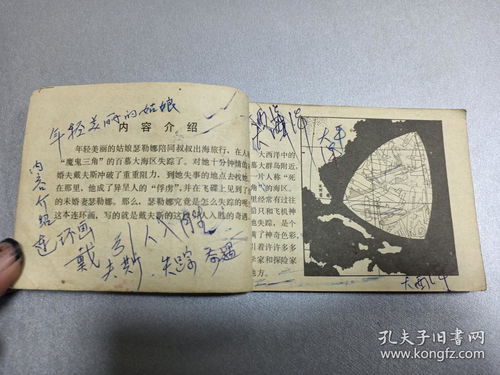 年轻美丽的姑娘
内容介绍
年轻美丽的姑娘瑟勒娜陪同叔叔出海旅行，在人称
“魔鬼三角”的百慕大海区失踪了。对她十分钟情的未
婚夫戴夫斯冲破了重重阻力，到她失事的地点去找她。
在那里，他成了异星人的“俘虏”，并在飞碟上见到了他
的未婚妻瑟勒娜。那么，瑟勒娜究竟是怎么失踪的呢？
这本连环画，写的就是戴夫斯的这引人入胜的奇遇。
内容介绍
连环画
戴夫斯
引人入胜
失踪 奇遇
大西洋中的
慕大群岛附近，
一片人称“死
角”的海区。
里经常有过往
船只和飞机神
失踪，是个
满了神奇色彩，
引着许许多多
学家和探险家
地方。
大西洋
孔夫子旧书网
www.kongfz.com